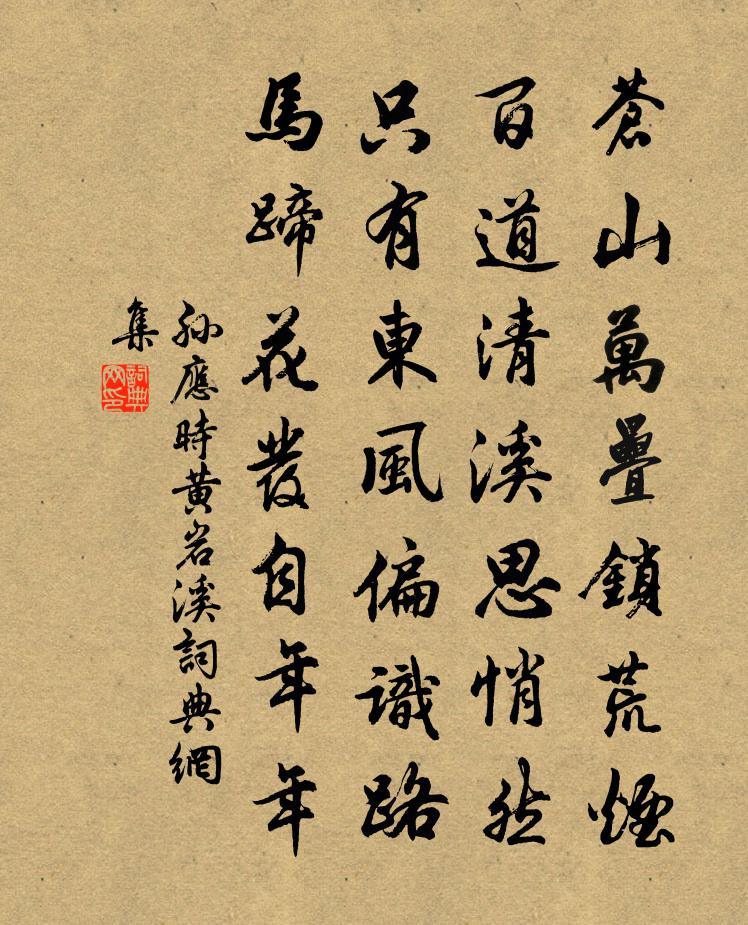 蒼山萬疊鎖荒煙
百道清溪思悄然
只有東風偏識路
馬蹄花發自年年
孙應時黄岩溪詞典網
集
詞典
网印